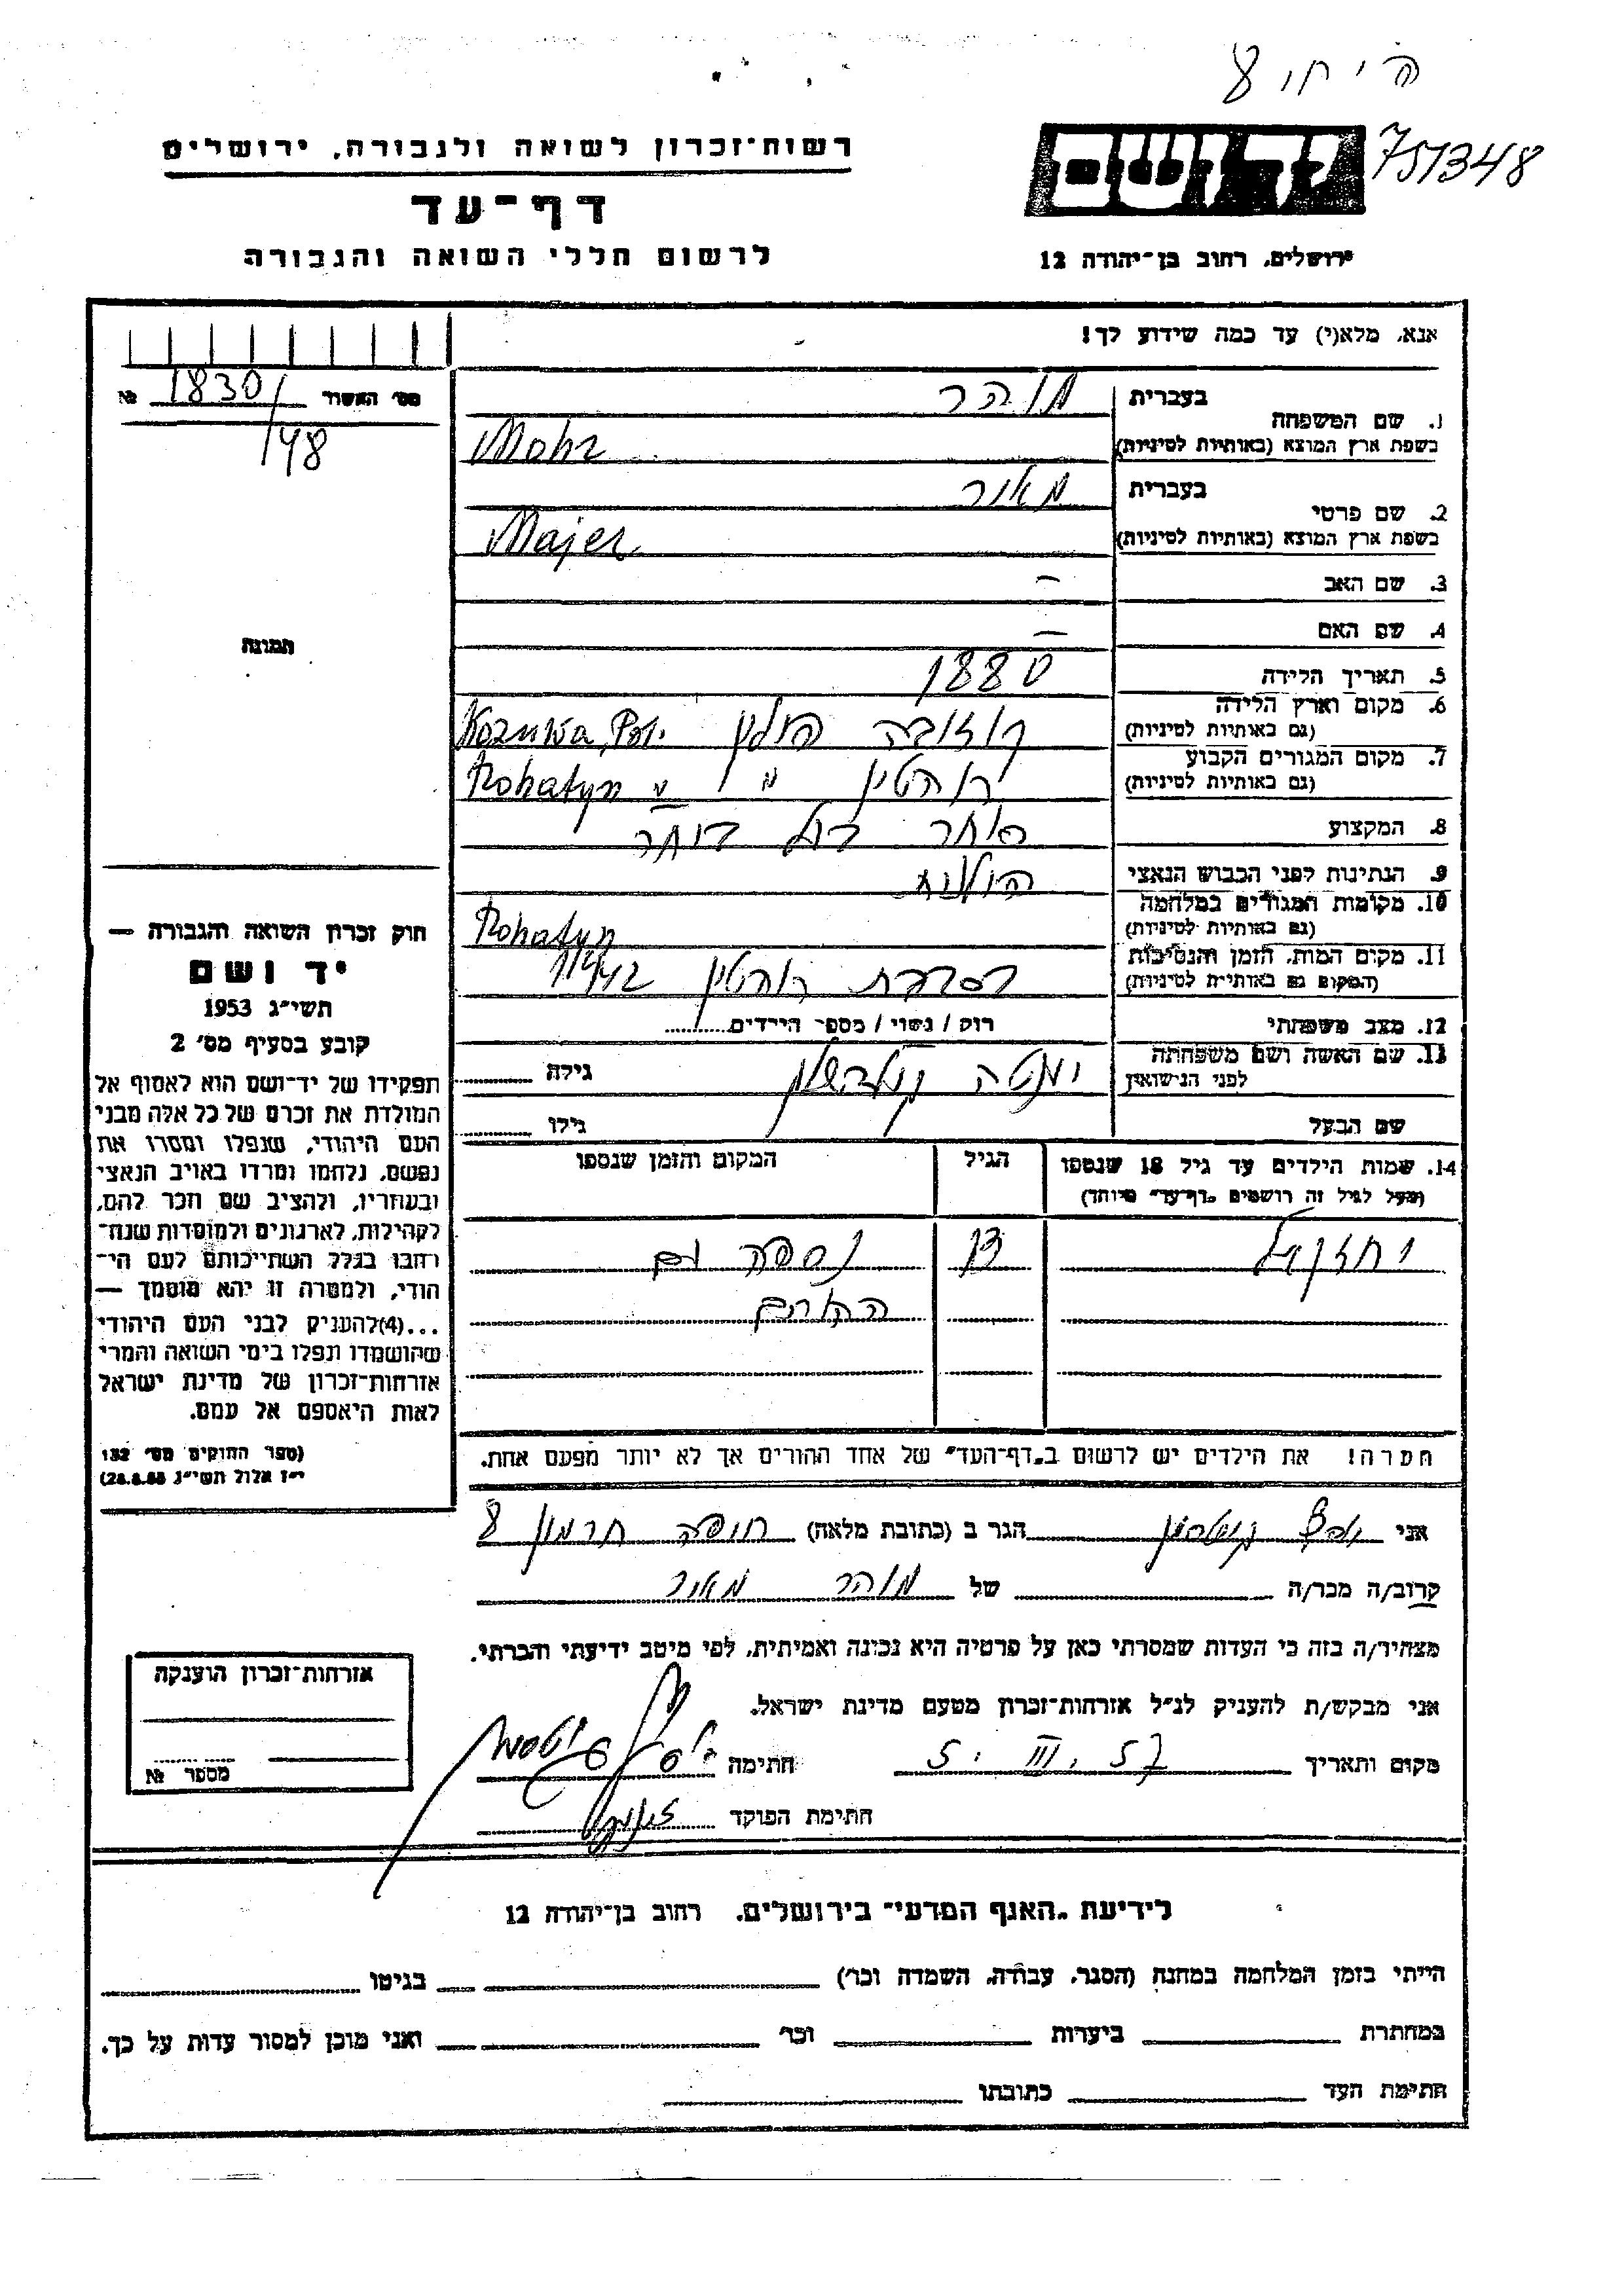 751348
רשות־זכרון לשואה ולגבורה, ירושלים
יד ושם
דף־עד
לרשום חללי השואה והגבורה
ירושלים, רחוב בן־יהודה 12
אנא, מלא(י) עד כמה שידוע לך!
מס׳ האשור 1830/ №
148
בעברית מוהר
1. שם המשפחה
בשפת ארץ המוצא (באותיות לטיניות) Mohr
בעברית מאיר
2. שם פרטי
בשפת ארץ המוצא (באותיות לטיניות) Majer
3. שם האב –
4. שם האם –
תמונה
5. תאריך הלידה 1880
6. מקום וארץ הלידה
(גם באותיות לטיניות) קוזובה פולין Kozuwa, Pol.
7. מקום המגורים הקבוע
(גם באותיות לטיניות) רוהטין " Rohatyn "
8. המקצוע סוחר
9. הנתינות לפני הכבוש הנאצי פולנית
10. מקומות המגורים במלחמה
(גם באותיות לטיניות) Rohatyn
11. מקום המות, הזמן והנסיבות
(המקום גם באותיות לטיניות) רוהטין
12. מצב משפחתי רווק / נשוי / מספר הילדים
13. שם האשה ושם משפחתה
לפני הנישואין גילה
שם הבעל גילו
14. שמות הילדים עד גיל 18 שנספו הגיל המקום והזמן שנספו
(מעל לגיל זה רושמים „דף־עד״ מיוחד)
יחזקאל 13 נספה עם
ההורים
חוק זכרון השואה והגבורה —
יד ושם
תשי״ג 1953
קובע בסעיף מס׳ 2
תפקידו של יד־ושם הוא לאסוף אל
המולדת את זכרם של כל אלה מבני
העם היהודי, שנפלו ומסרו את
נפשם, נלחמו ומרדו באויב הנאצי
ובעוזריו, ולהציב שם וזכר להם,
לקהילות, לארגונים ולמוסדות שנח־
רבו בגלל השתייכותם לעם הי־
הודי, ולמטרה זו יהא מוסמך —
...(4)להעניק לבני העם היהודי
שהושמדו ונפלו בימי השואה והמרי
אזרחות־זכרון של מדינת ישראל
לאות היאספם אל עמם.
(ספר החוקים מס׳ 132
י״ז אלול תשי״ג 28.8.53)
הערה! את הילדים יש לרשום ב„דף־העד״ של אחד ההורים אך לא יותר מפעם אחת.
אני הגר ב (כתובת מלאה) חיפה חרמון 8
קרוב/ה מכר/ה של מוהר מאיר
מצהיר/ה בזה כי העדות שמסרתי כאן על פרטיה היא נכונה ואמיתית, לפי מיטב ידיעתי והכרתי.
אני מבקש/ת להעניק לנ״ל אזרחות־זכרון מטעם מדינת ישראל.
מקום ותאריך 5. III. 57 חתימה
חתימת הפוקד
אזרחות־זכרון הוענקה
מספר №
לידיעת „האגף המדעי״ בירושלים, רחוב בן־יהודה 12
הייתי בזמן המלחמה במחנה (הסגר, עבודה, השמדה וכו׳) בגיטו
במחתרת ביערות וכו׳ ואני מוכן למסור עדות על כך.
חתימת העד כתובתו